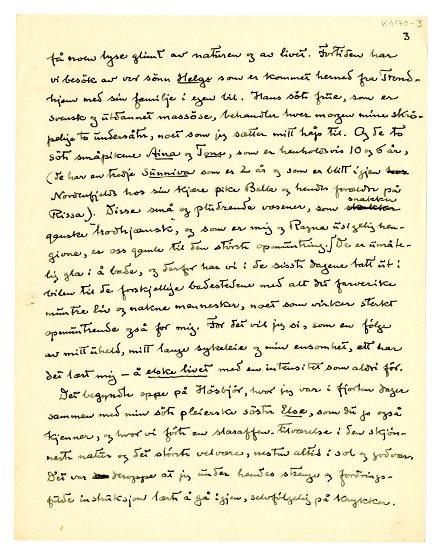 K1170-3
3
få noen lyse glimt av naturen og av livet. Fortiden har
vi besök av vor sönn Helge som er kommet herned fra Trond-
hjem med sin familje i egen bil. Hans söte frue, som er
svensk og utdannet massöse, behandler hver morgen mine skrö-
pelige to undersåtter, noet som jeg sætter mitt håp til. Og de to
söte småpikene Aina og Tone, som er henholdsvis 10 og 6 år,
(de har en tredje Sunniva som er 2 år og som er blitt igjen
Nordenfjelds hos sin kjære pike Bella og hendes foreldre på
Rissa). Disse små og pludrende vesener, som snakker
ganske trondhjemsk, og som er mig og Ragna usigelig hen-
givne, er oss gamle til den störste opmuntring. De er umåte-
lig gla i å bade, og derfor har vi i de sisste dagene tatt ut i
bilen til de forskjellige badestedene med alt det farverike
muntre liv og nakne mennesker, noet som virker sterkt
opmuntrende også for mig. For det vil jeg si, som en fölge
av mitt uheld, mitt lange sykeleie og min ensomhet, ett har
det lært mig – å elske livet med en intensitet som aldri för.
Det begynte oppe på Håsbjör, hvor jeg var i fjorten dager
sammen med min söte pleierske söster Else, som du jo også
kjenner, og hvor vi förte en tilværelse i den skjön-
neste natur og det störste velvære, nesten altid i sol og godvær.
Det var deroppe at jeg under hendes strenge og fordrings-
fulde instruksjon lært å gå igjen, selvfölgelig på krykker.